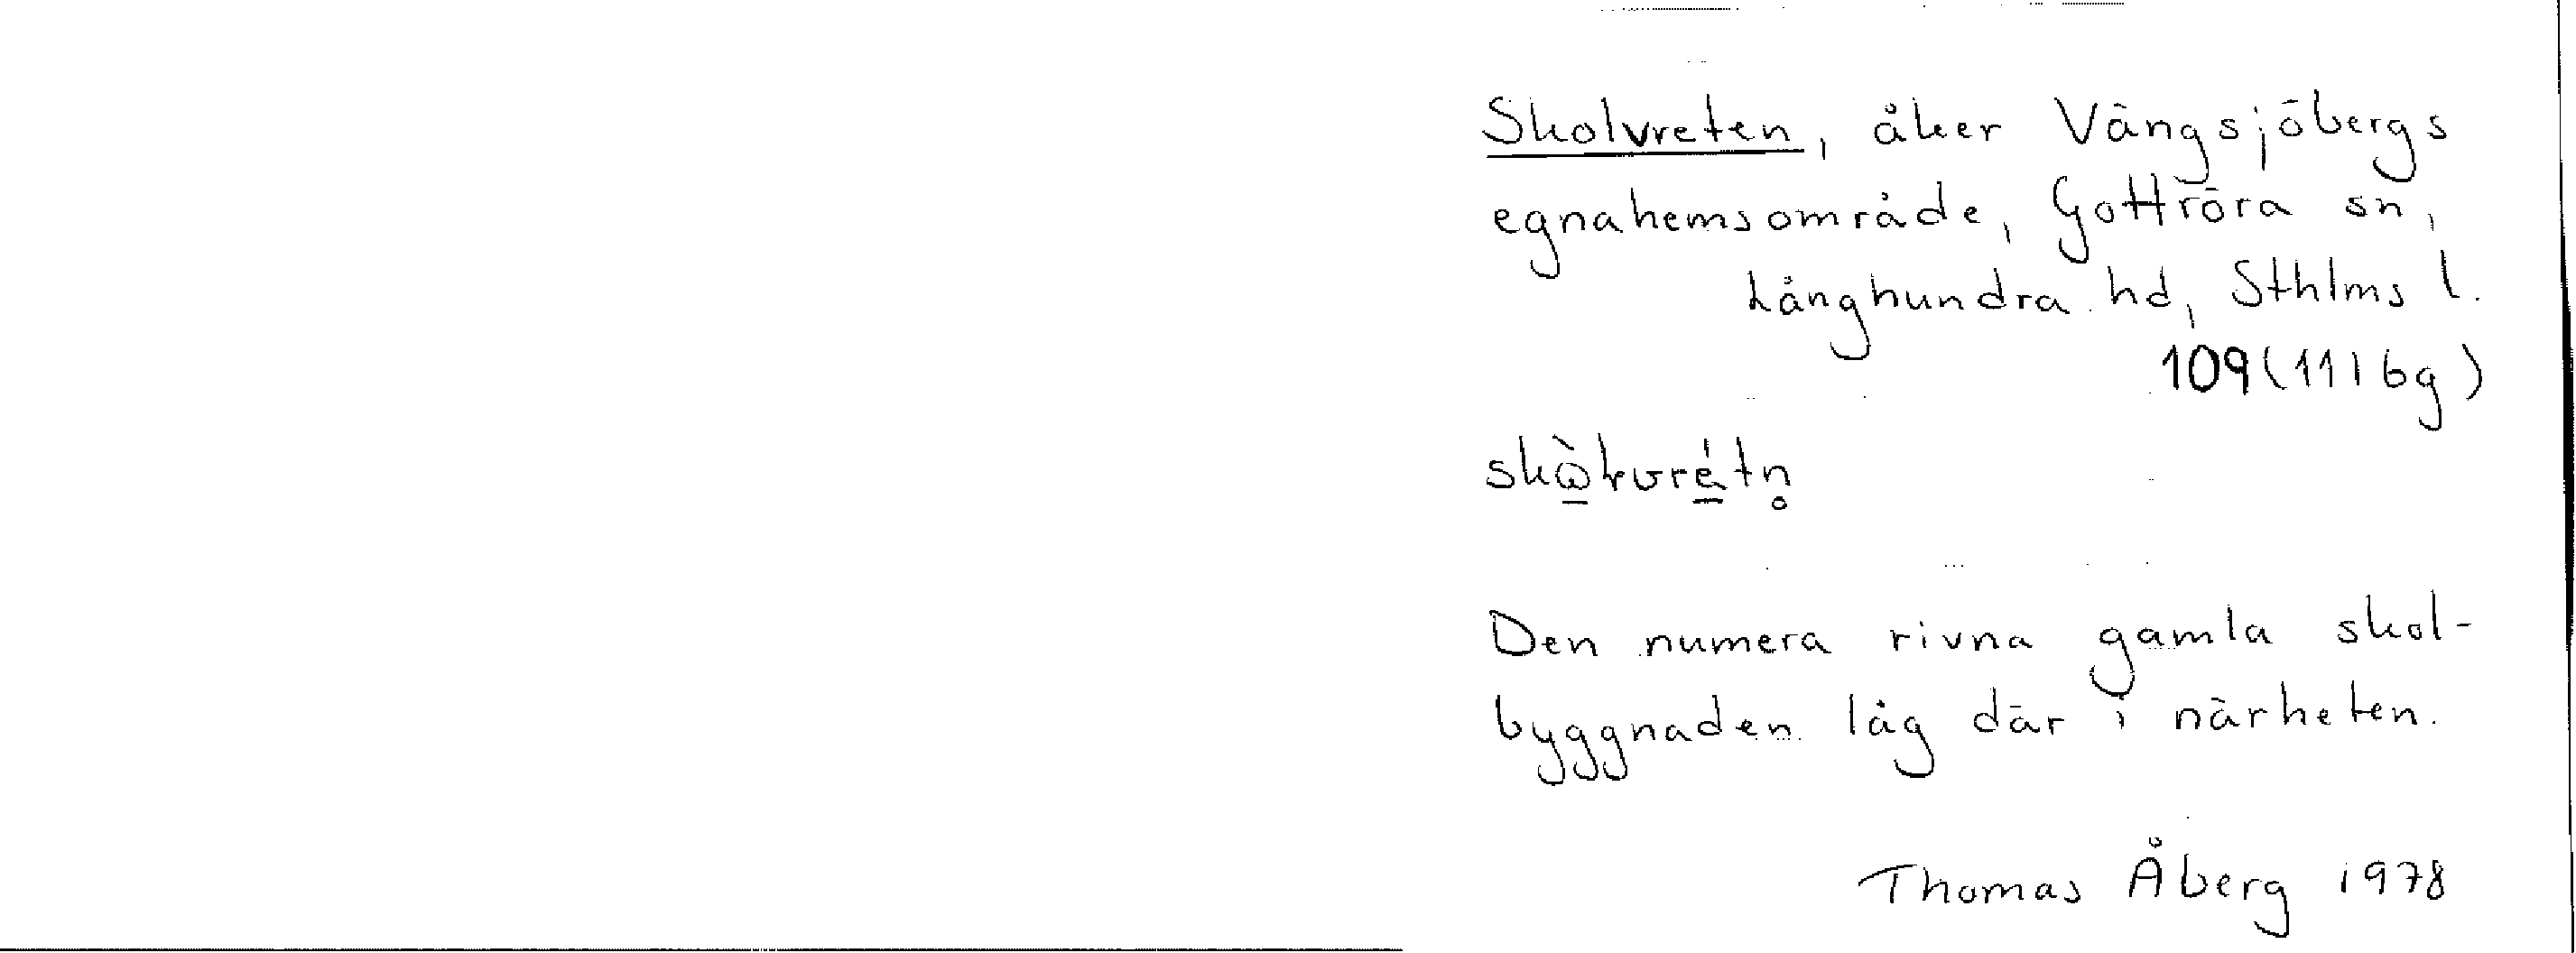 Skolvreten, åker Vängsjöbergs
egnahemsområde, Gottröra sn,
Långhundra hd, Sthlms l.
109 (11I 6g)
Den numera rivna gamla skol-
byggnaden låg där i närheten.
Thomas Åberg 1978